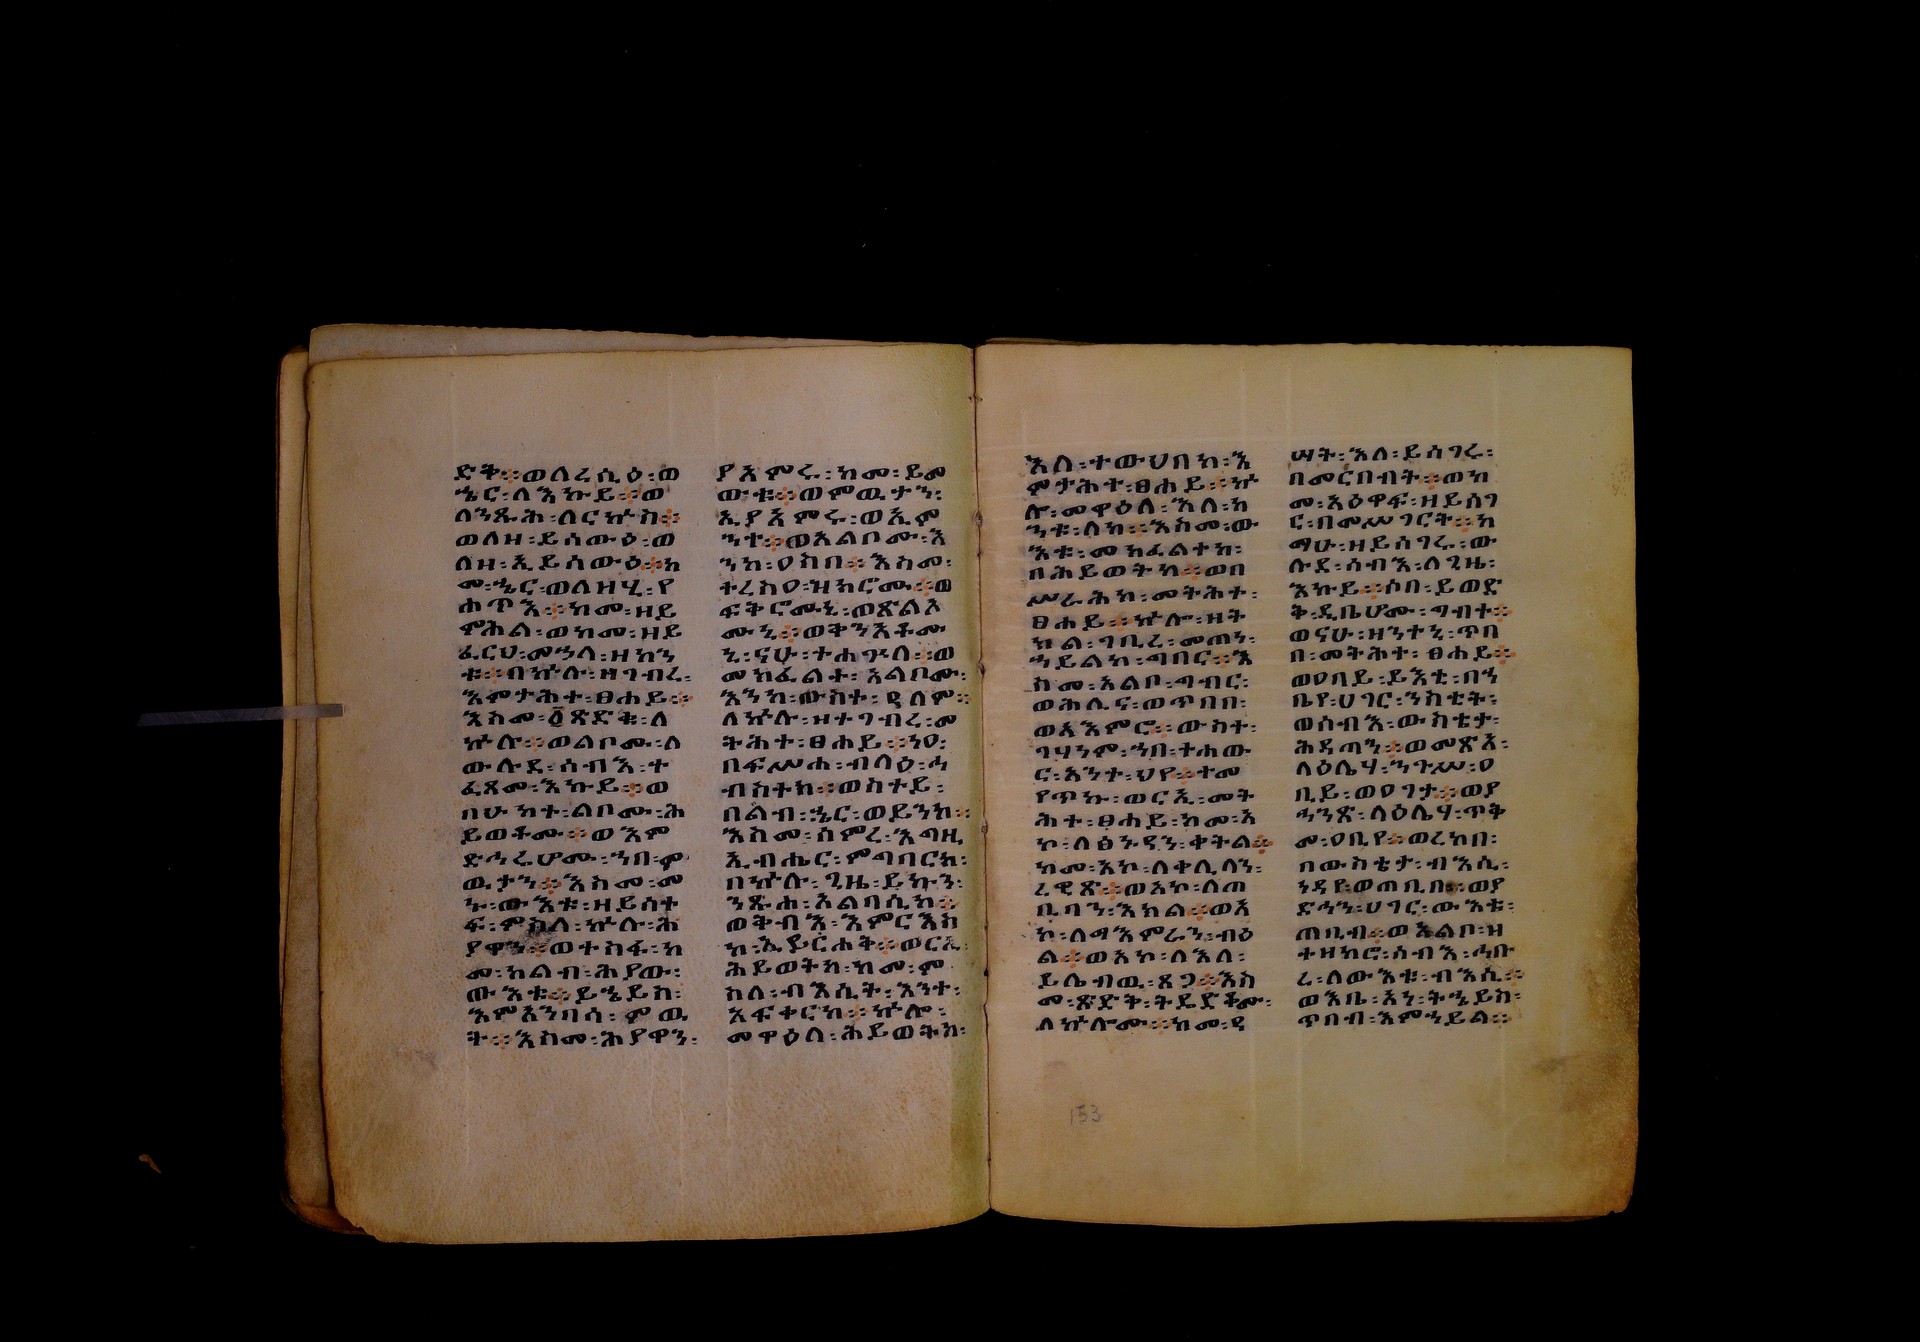 ድቅ፨ወለረሲዕ፡ወ
ኄር፡ለእኩይ፨ወ
ለንጹሕ፡ለርኵስ፨
ወለዘ፡ይሰውዕ፡ወ
ለዘ፡ኢይሰውዕ፨ከ
መ፡ኄር፡ወለዘሂ፡የ
ሐጥእ፨ከመ፡ዘይ
ምሕል፡ወከመ፡ዘይ
ፈርህ፡መኃላ፡ዘከን
ቱ፨በኵሉ፡ዘገብረ፡
እምታሕተ፡ፀሐይ፨
እስመ፡፩ጽድቁ፡ለ
ኵሉ፨ወልቦሙ፡ለ
ውሉደ፡ሰብእ፡ተ
ፈጸመ፡እኩይ፨ወ
በሁከተ፡ልቦሙ፡ሕ
ይወቶሙ፨ወእም
ድኅሬሆሙ፡ኀበ፡ም
ዉታን፨እስመ፡መ
ኑ፡ውእቱ፡ዘይሰተ
ፍ፡ምስለ፡ኵሉ፡ሕ
ያዋን፨ወተስፋ፡ከ
መ፡ከልብ፡ሕያው፡
ውእቱ፨ይኄይስ፡
እምአንበሳ፡ምዉ
ት፨እስመ፡ሕያዋን፡
ያአምሩ፡ከመ፡ይመ
ውቱ፨ወምዉታን፡
ኢያአምሩ፡ወኢም
ንተ፨ወአልቦሙ፡እ
ንከ፡ዐስበ፨እስመ፡
ተረስዐ፡ዝክሮሙ፨ወ
ፍቅሮሙኒ፡ወጽልኦ
ሙኒ፨ወቅንአቶሙ
ኒ፡ናሁ፡ተሐጕለ፨ወ
መክፈልተ፡አልቦሙ፡
እንከ፡ውስተ፡ዓለም፨
ለኵሉ፡ዘተገብረ፡መ
ትሕተ፡ፀሐይ፨ነዐ፡
በፍሥሐ፡ብላዕ፡ኅ
ብስተከ፨ወስተይ፡
በልብ፡ኄር፡ወይንከ፨
እስመ፡ሰምረ፡እግዚ
ኢብሔር፡ምግባርከ፡
በኵሉ፡ጊዜ፡ይኩን፡
ንጹሐ፡አልባሲከ፨
ወቅብእ፡እምርእስ
ከ፡ኢይርሐቅ፨ወርኢ
ሕይወትከ፡ከመ፡ም
ስለ፡ብእሲት፡እንተ፡
አፍቀርከ፨ኵሎ፡
መዋዕለ፡ሕይወትከ፡
እለ፡ተውህበከ፡እ
ምታሕተ፡ፀሐይ፨ኵ
ሎ፡መዋዕለ፡እለ፡ከ
ንቱ፡ለከ፨እስመ፡ው
እቱ፡መክፈልተከ፡
በሕይወትከ፨ወበ
ሥራሕከ፡መትሕተ፡
ፀሐይ፨ኵሎ፡ዘት
ክል፡ገቢረ፡መጠነ፡
ኀይልከ፡ግበር፨እ
ስመ፡አልቦ፡ግብር፡
ወሕሊና፡ወጥበብ፡
ወአእምሮ፨ውስተ፡
ገሃነም፡ኀበ፡ተሐው
ር፡አንተ፡ህየ፨ተመ
የጥኩ፡ወርኢ፡መት
ሕተ፡ፀሐይ፡ከመ፡አ
ኮ፡ለፅኑዳን፡ቀትል፨
ከመ፡አኮ፡ለቀሊላን፡
ረዊጽ፨ወአኮ፡ለጠ
ቢባን፡እክል፨ወአ
ኮ፡ለማእምራን፡ብዕ
ል፨ወአኮ፡ለእለ፡
ይሌብዉ፡ጸጋ፨እስ
መ፡ጽድቅ፡ትደድቆሙ፡
ለኵሎሙ፨ከመ፡ዓ
ሣት፡እለ፡ይሰገሩ፡
በመርበብት፨ወከ
መ፡አዕዋፍ፡ዘይሰገ
ር፡በመሥገርት፨ከ
ማሁ፡ዘይሰገሩ፡ው
ሉደ፡ሰብእ፡ለጊዜ፡
እኩይ፨ሶበ፡ይወድ
ቅ፡ዲቤሆሙ፡ግብተ፨
ወናሁ፡ዘንተኒ፡ጥበ
በ፡መትሕተ፡ፀሐይ፨
ወዐባይ፡ይእቲ፡በኀ
ቤየ፡ሀገር፡ንስቲት፡
ወሰብእ፡ውስቴታ፡
ሕዳጣን፨ወመጽአ፡
ላዕሌሃ፡ንጉሥ፡ዐ
ቢይ፡ወዐገታ፨ወየ
ሓንጽ፡ላዕሌሃ፡ጥቅ
መ፡ዐቢየ፨ወረከበ፡
በውስቴታ፡ብእሲ፡
ነዳየ፡ወጠቢበ፨ወየ
ድኅን፡ሀገር፡ውእቱ፡
ጠቢብ፨ወአልቦ፡ዘ
ተዘከሮ፡ሰብእ፡ኅቡ
ረ፡ለውእቱ፡ብእሲ፨
ወእቤ፡አነ፡ትኄይስ፡
ጥበብ፡እምኀይል፨
153